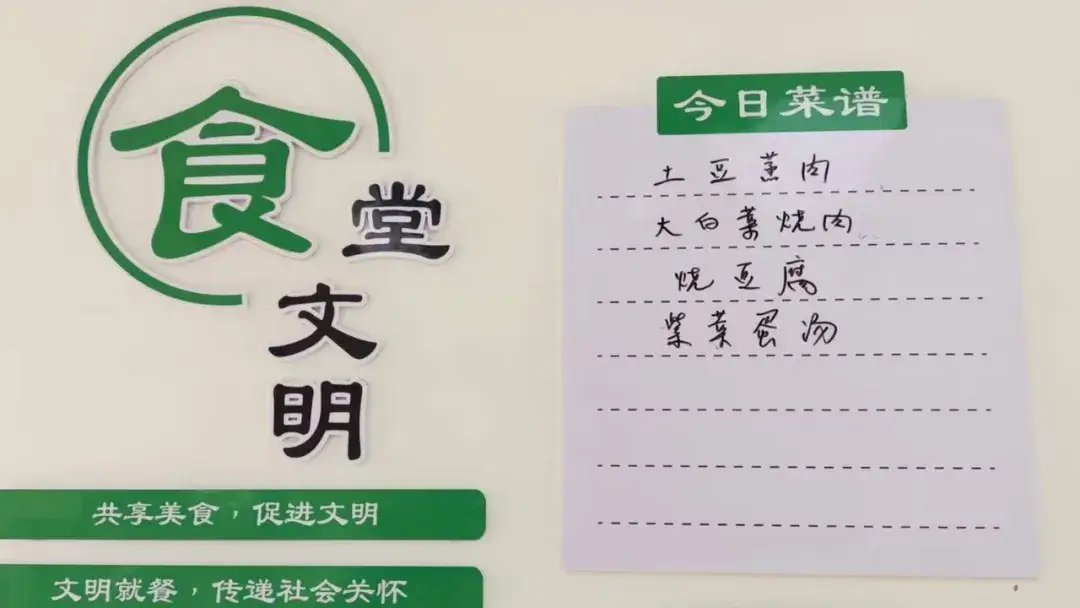 食堂文明
共享美食，促进文明
文明就餐，传递社会关怀
今日菜谱
土豆蒸肉
大白菜烧肉
烧豆腐
紫菜蛋汤